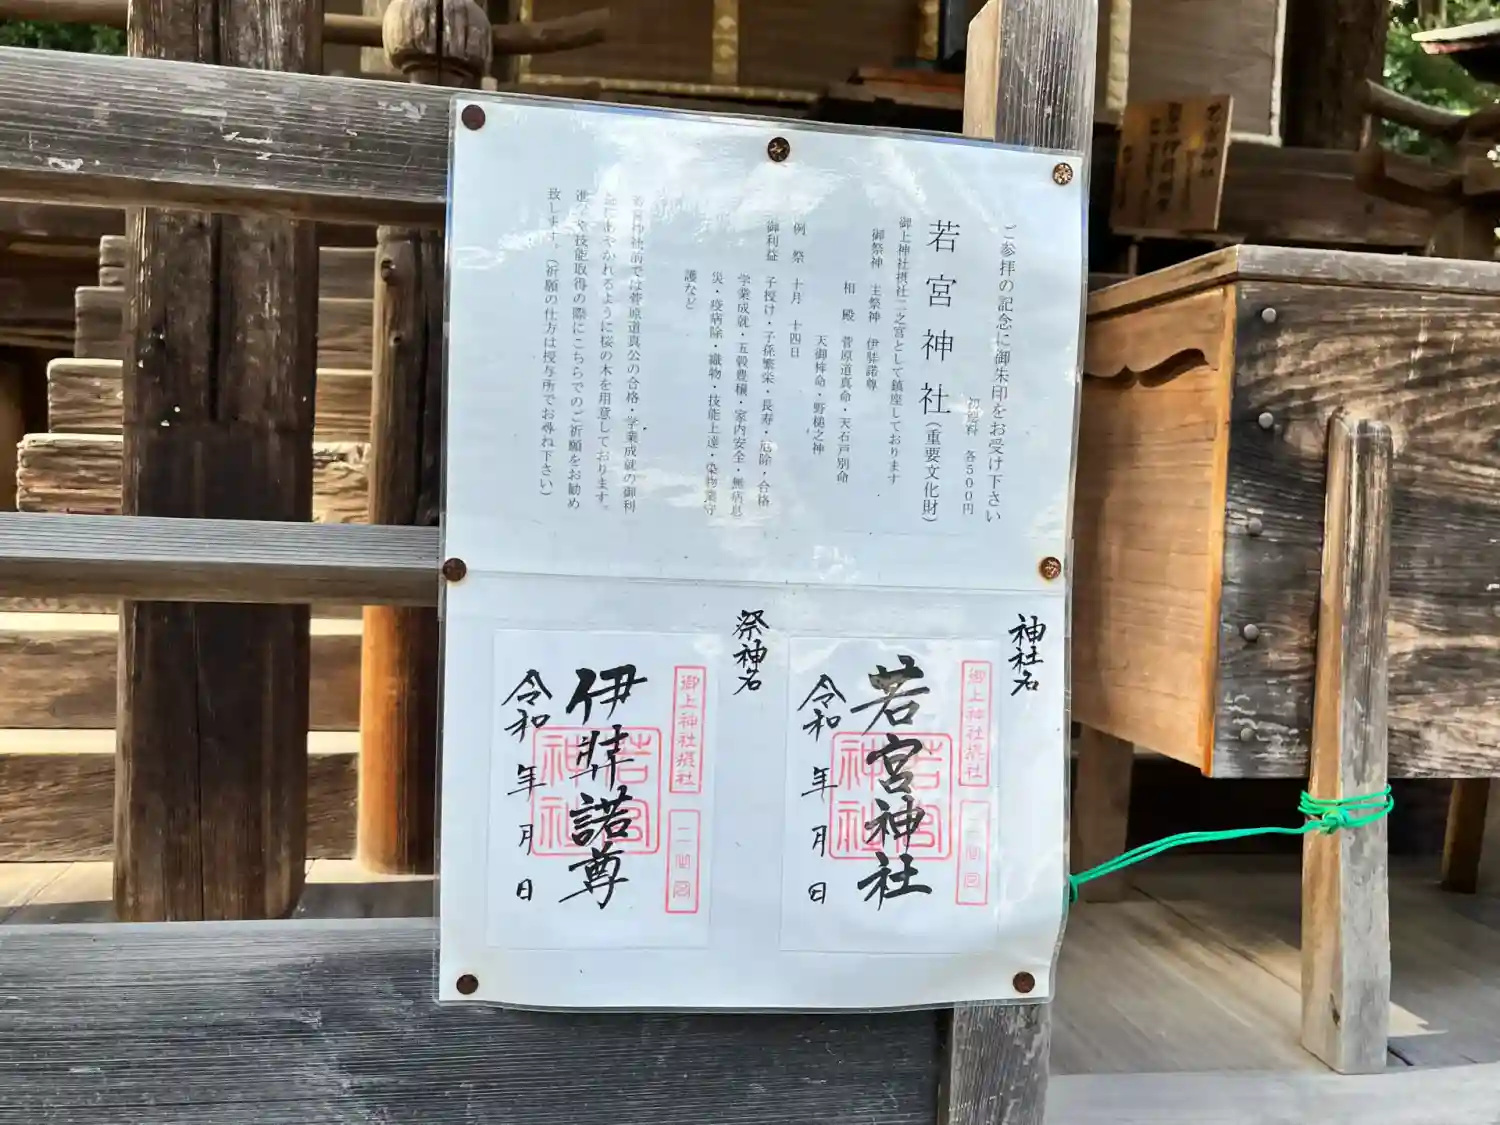 ご参拝の記念に御朱印をお受け下さい
初穂料 各500円
若宮神社(重要文化財)
御上神社摂社二之宮として鎮座しております
御祭神 主祭神 伊弉諾尊
相殿 菅原道真命・天石戸別命
天御鉾命・野槌之神
例祭 十月 十四日
御利益 子授け・子孫繁栄・長寿・厄除・合格
学業成就・五穀豊穣・家内安全・無病息
災・疫病除・織物・技能上達・染物業守
護など
若宮神社前では菅原道真公の合格・学業成就の御利
益にあやかれるように桜の木を用意しております。
進学や技能取得の際にこちらでのご祈願をお勧め
致します。(祈願の仕方は授与所でお尋ね下さい)
神社名
御上神社摂社
若宮神社
若宮神社
令和 年 月 日
祭神名
御上神社摂社
伊弉諾尊
若宮神社
令和 年 月 日